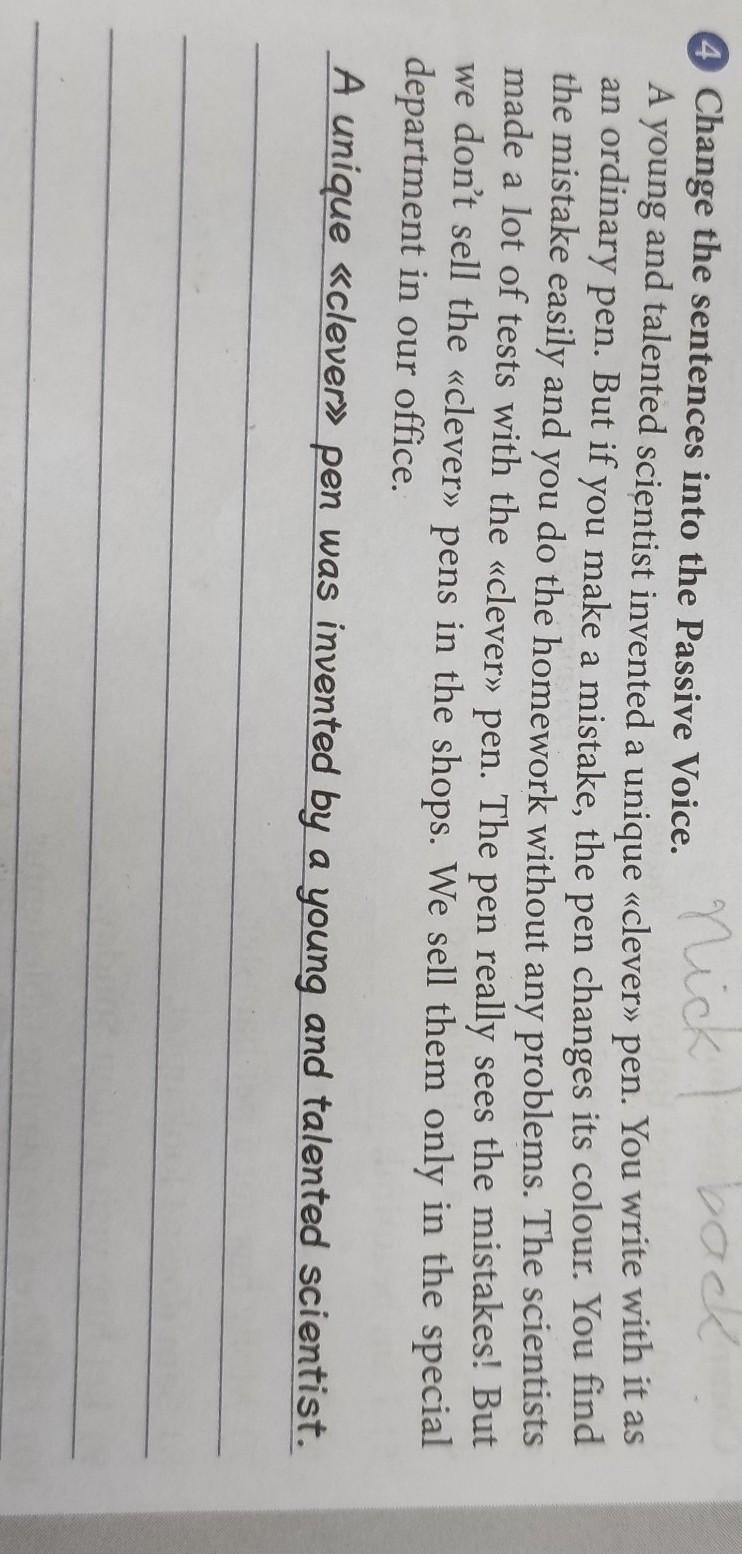 4 Change the sentences into the Passive Voice.
A young and talented scientist invented a unique «clever» pen. You write with it as
an ordinary pen. But if you make a mistake, the pen changes its colour. You find
the mistake easily and you do the homework without any problems. The scientists
made a lot of tests with the «clever» pen. The pen really sees the mistakes! But
we don't sell the «clever» pens in the shops. We sell them only in the special
department in our office.
A unique «clever» pen was invented by a young and talented scientist.